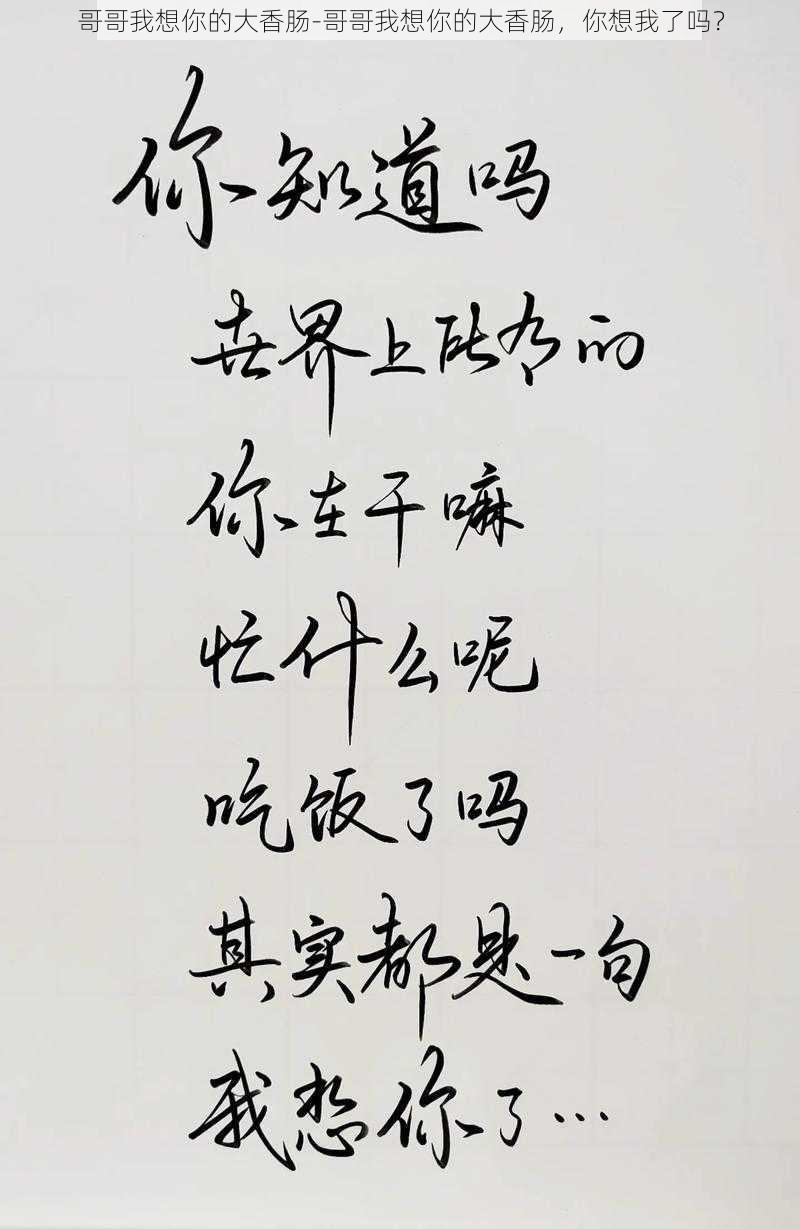 哥哥我想你的大香肠-哥哥我想你的大香肠，你想我了吗？
你知道吗
世界上所有的
你在干嘛
忙什么呢
吃饭了吗
其实都是一句
我想你了…